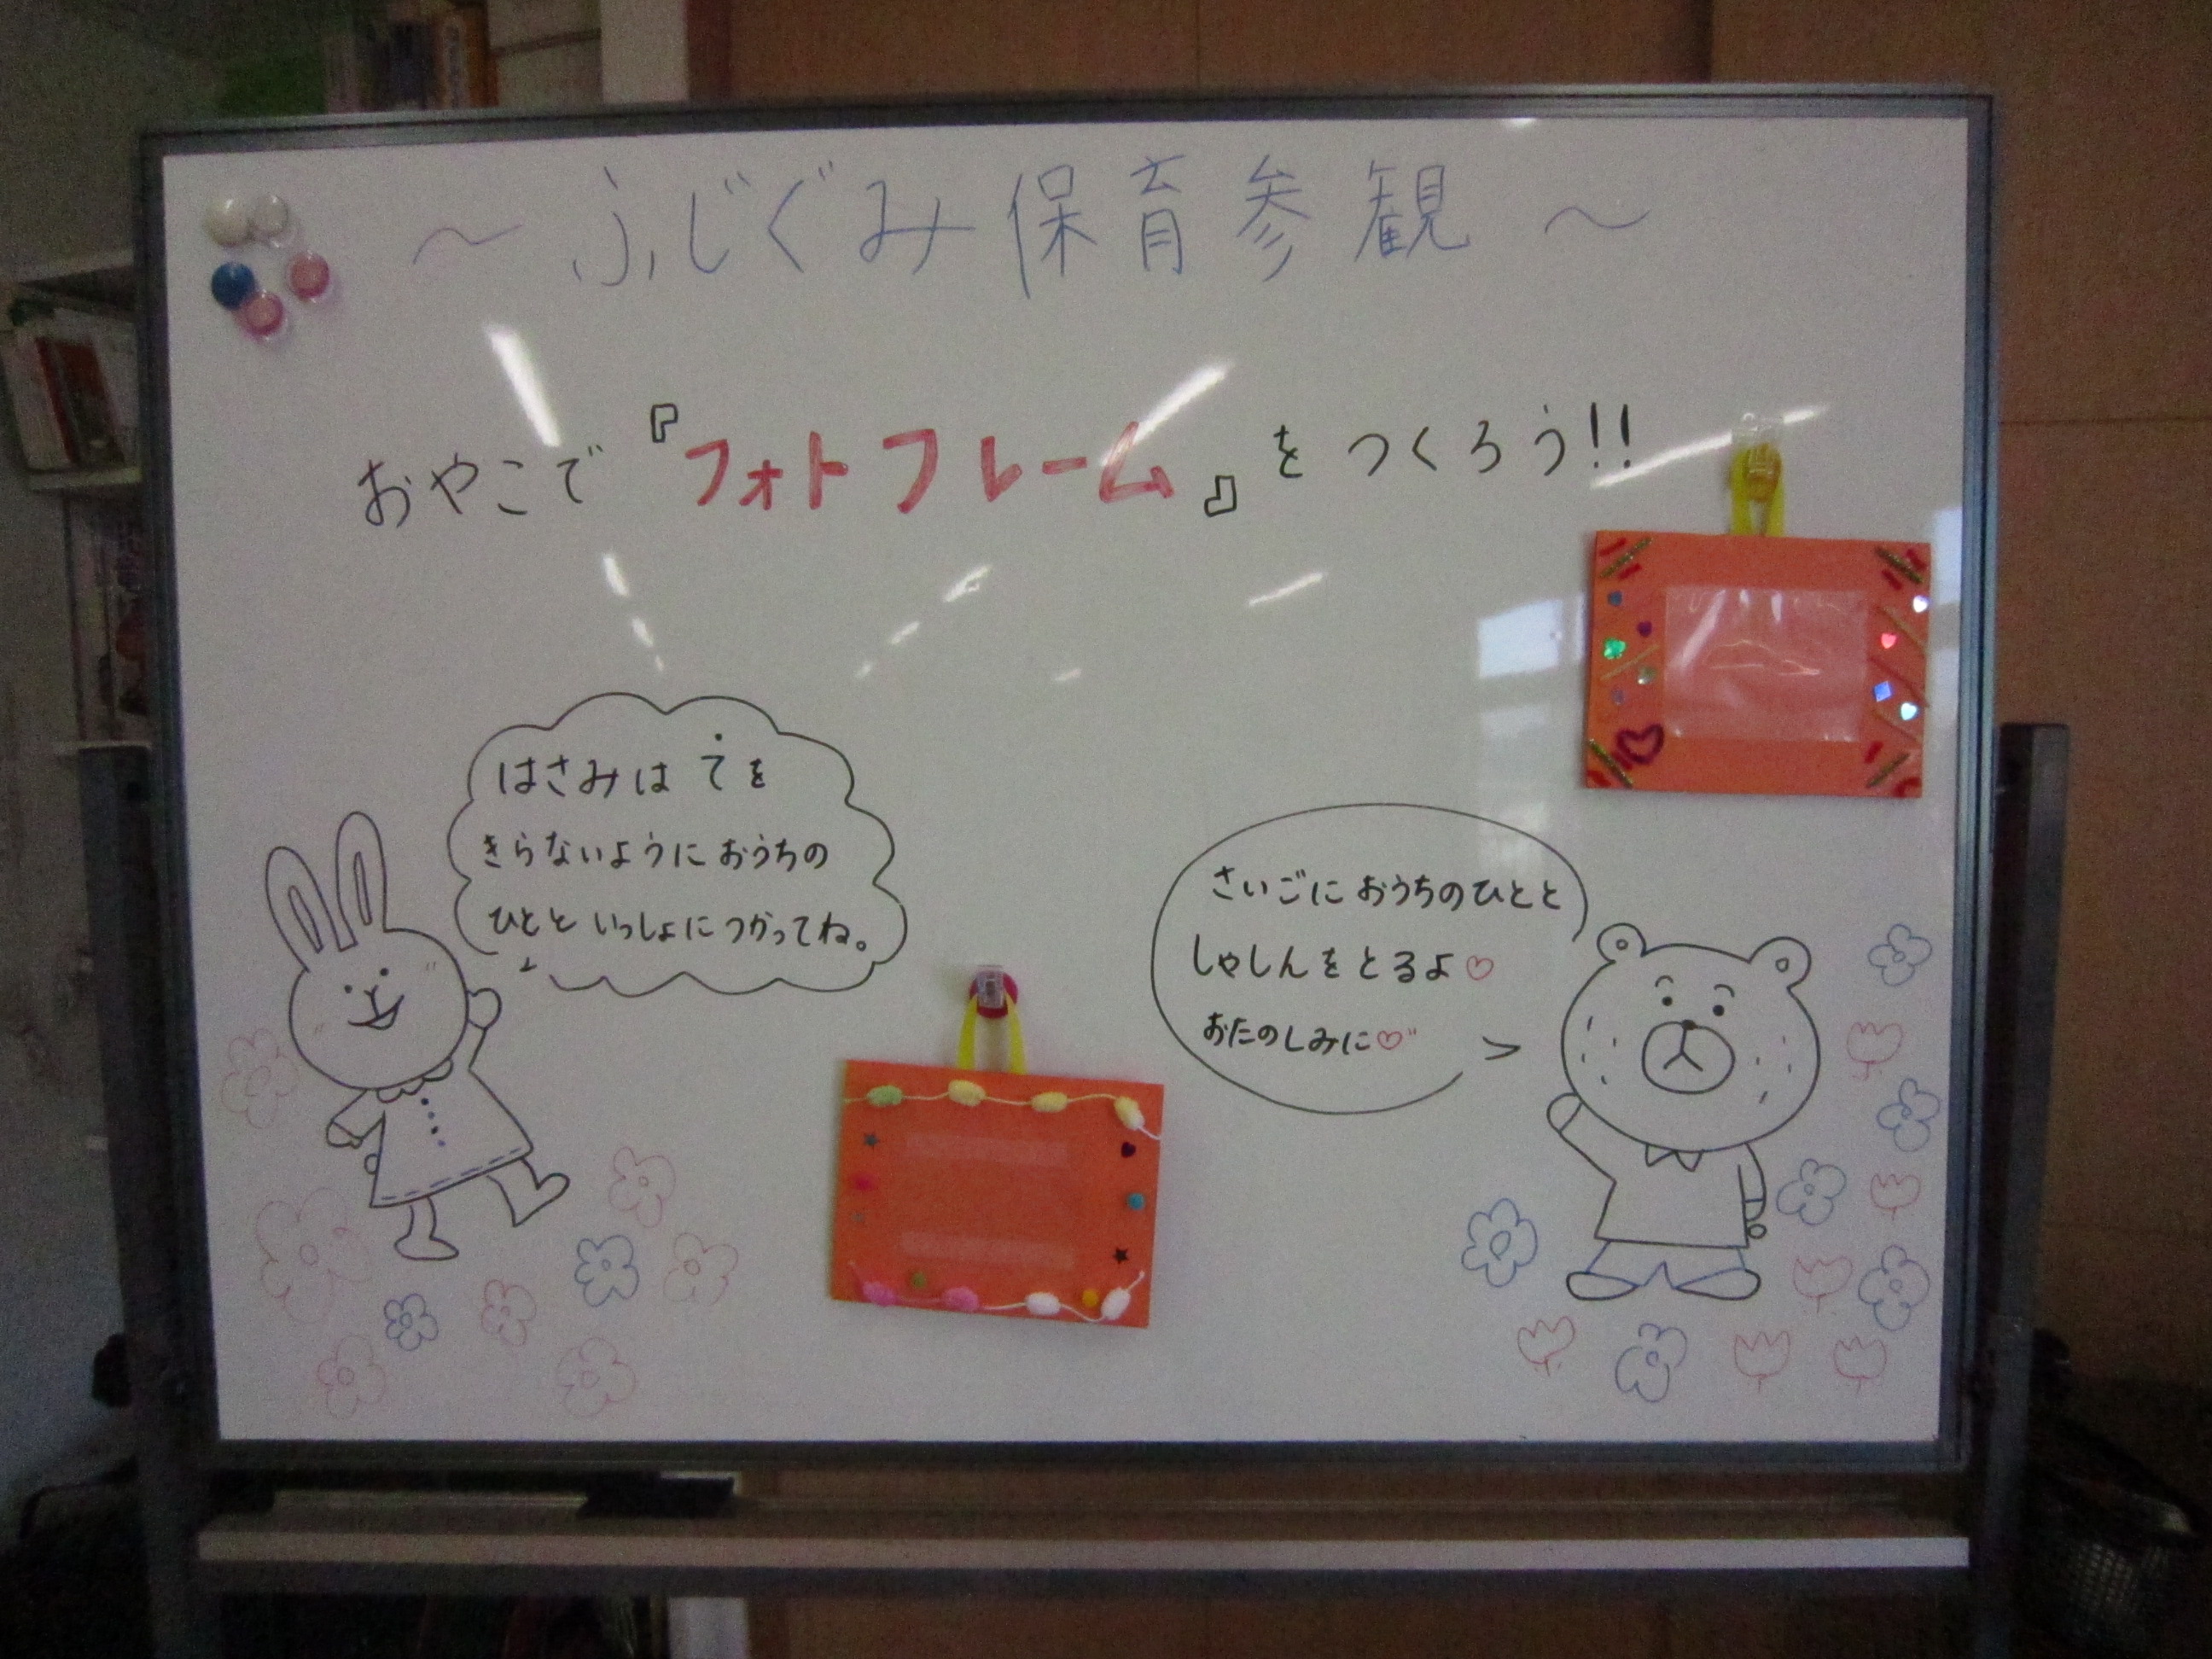 ～ふじぐみ保育参観～
おやこで『フォトフレーム』をつくろう!!
はさみは てを
きらないようにおうちの
ひとと いっしょにつかってね。
さいごにおうちのひとと
しゃしんをとるよ♡
おたのしみに♡